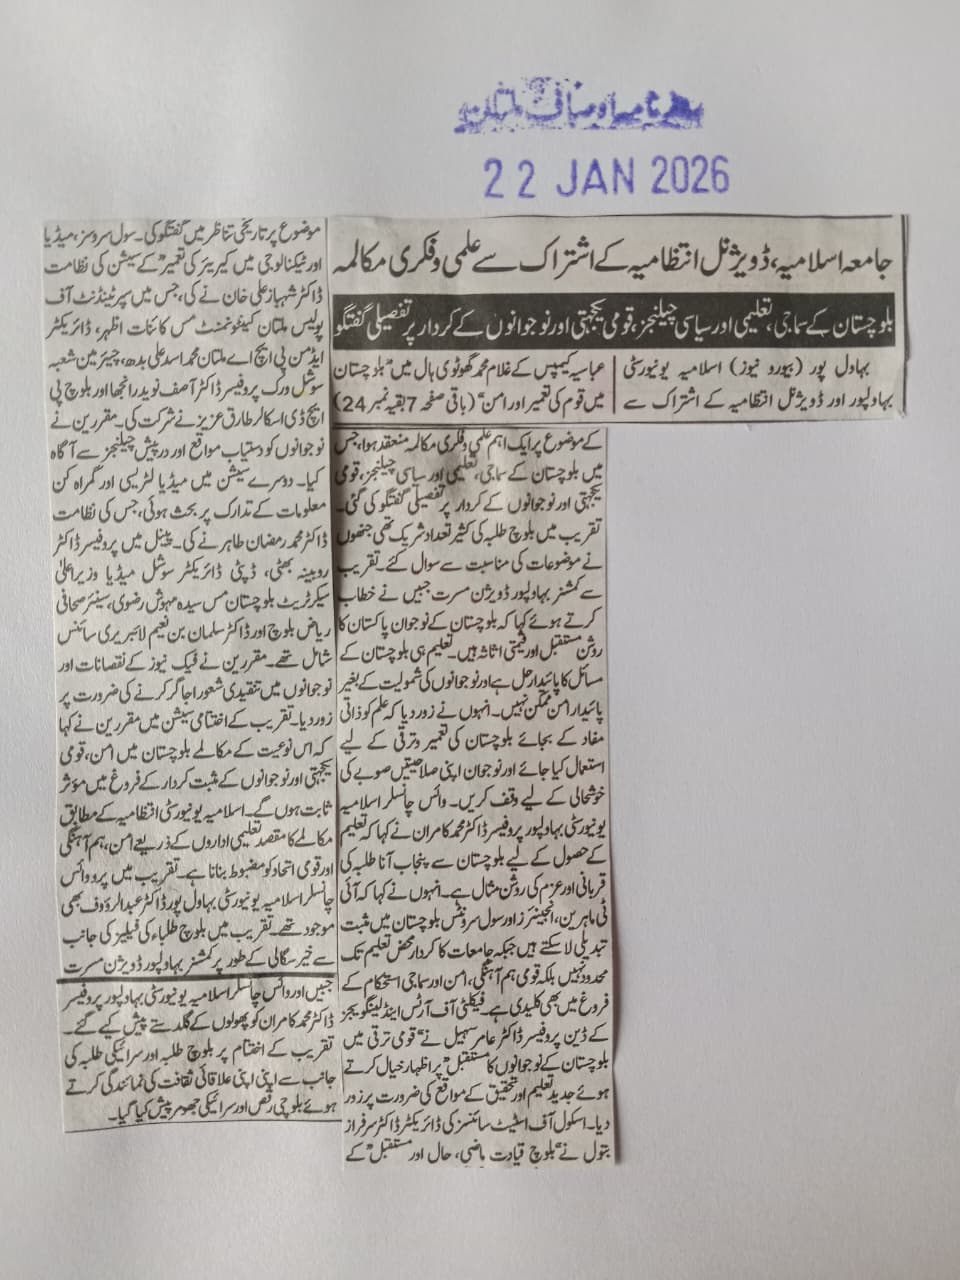 روزنامہ اوصاف ملتان
22 JAN 2026
جامعہ اسلامیہ، ڈویژنل انتظامیہ کے اشتراک سے علمی و فکری مکالمہ
بلوچستان کے سماجی، تعلیمی اور سیاسی چیلنجز، قومی یکجہتی اور نوجوانوں کے کردار پر تفصیلی گفتگو
بہاول پور (بیورو نیوز) اسلامیہ یونیورسٹی
بہاولپور اور ڈویژنل انتظامیہ کے اشتراک سے
عباسیہ کیمپس کے غلام محمد گھوٹوی ہال میں ”بلوچستان
میں قوم کی تعمیر اور امن“ (باقی صفحہ 7 بقیہ نمبر 24)
کے موضوع پر ایک اہم علمی و فکری مکالمہ منعقد ہوا، جس
میں بلوچستان کے سماجی، تعلیمی اور سیاسی چیلنجز، قومی
یکجہتی اور نوجوانوں کے کردار پر تفصیلی گفتگو کی گئی۔
تقریب میں بلوچ طلبہ کی کثیر تعداد شریک تھی جنھوں
نے موضوعات کی مناسبت سے سوال کئے۔ تقریب
سے کمشنر بہاولپور ڈویژن مسرت جبیں نے خطاب
کرتے ہوئے کہا کہ بلوچستان کے نوجوان پاکستان کا
روشن مستقبل اور قیمتی اثاثہ ہیں۔ تعلیم ہی بلوچستان کے
مسائل کا پائیدار حل ہے اور نوجوانوں کی شمولیت کے بغیر
پائیدار امن ممکن نہیں۔ انہوں نے زور دیا کہ علم کو ذاتی
مفاد کے بجائے بلوچستان کی تعمیر و ترقی کے لیے
استعمال کیا جائے اور نوجوان اپنی صلاحیتیں صوبے کی
خوشحالی کے لیے وقف کریں۔ وائس چانسلر اسلامیہ
یونیورسٹی بہاولپور پروفیسر ڈاکٹر محمد کامران نے کہا کہ تعلیم
کے حصول کے لیے بلوچستان سے پنجاب آنا طلبہ کی
قربانی اور عزم کی روشن مثال ہے۔ انہوں نے کہا کہ آئی
ٹی ماہرین، انجینئرز اور سول سرونٹس بلوچستان میں مثبت
تبدیلی لا سکتے ہیں جبکہ جامعات کا کردار محض تعلیم تک
محدود نہیں بلکہ قومی ہم آہنگی، امن اور سماجی استحکام کے
فروغ میں بھی کلیدی ہے۔ فیکلٹی آف آرٹس اینڈ لینگویجز
کے ڈین پروفیسر ڈاکٹر عامر سہیل نے ”قومی ترقی میں
بلوچستان کے نوجوانوں کا مستقبل“ پر اظہار خیال کرتے
ہوئے جدید تعلیم اور تحقیق کے مواقع کی ضرورت پر زور
دیا۔ اسکول آف اسٹیٹ سائنسز کی ڈائریکٹر ڈاکٹر سرفراز
بتول نے ”بلوچ قیادت ماضی، حال اور مستقبل“ کے
موضوع پر تاریخی تناظر میں گفتگو کی۔ سول سروسز، میڈیا
اور ٹیکنالوجی میں کیریئر کی تعمیر“ کے سیشن کی نظامت
ڈاکٹر شہباز علی خان نے کی، جس میں سپرنٹنڈنٹ آف
پولیس ملتان کینٹونمنٹ مس کائنات اظہر، ڈائریکٹر
ایڈمن پی ایچ اے ملتان محمد اسد علی بدھ، چیئرمین شعبہ
سوشل ورک پروفیسر ڈاکٹر آصف نوید رانجھا اور بلوچ پی
ایچ ڈی اسکالر طارق عزیز نے شرکت کی۔ مقررین نے
نوجوانوں کو دستیاب مواقع اور درپیش چیلنجز سے آگاہ
کیا۔ دوسرے سیشن میں میڈیا لٹریسی اور گمراہ کن
معلومات کے تدارک پر بحث ہوئی، جس کی نظامت
ڈاکٹر محمد رمضان طاہر نے کی۔ پینل میں پروفیسر ڈاکٹر
روبینہ بھٹی، ڈپٹی ڈائریکٹر سوشل میڈیا وزیراعلیٰ
سیکرٹریٹ بلوچستان مس سیدہ مہوش رضوی، سینئر صحافی
ریاض بلوچ اور ڈاکٹر سلمان بن نعیم لائبریری سائنس
شامل تھے۔ مقررین نے فیک نیوز کے نقصانات اور
نوجوانوں میں تنقیدی شعور اجاگر کرنے کی ضرورت پر
زور دیا۔ تقریب کے اختتامی سیشن میں مقررین نے کہا
کہ اس نوعیت کے مکالمے بلوچستان میں امن، قومی
یکجہتی اور نوجوانوں کے مثبت کردار کے فروغ میں مؤثر
ثابت ہوں گے۔ اسلامیہ یونیورسٹی انتظامیہ کے مطابق
مکالمے کا مقصد تعلیمی اداروں کے ذریعے امن، ہم آہنگی
اور قومی اتحاد کو مضبوط بنانا ہے۔ تقریب میں پرو وائس
چانسلر اسلامیہ یونیورسٹی بہاول پور ڈاکٹر عبدالرؤوف بھی
موجود تھے۔ تقریب میں بلوچ طلباء کی فیلیز کی جانب
سے خیر سگالی کے طور پر کمشنر بہاولپور ڈویژن مسرت
جبیں اور وائس چانسلر اسلامیہ یونیورسٹی بہاولپور پروفیسر
ڈاکٹر محمد کامران کو پھولوں کے گلدستے پیش کیے گئے۔
تقریب کے اختتام پر بلوچ طلبہ اور سرائیکی طلبہ کی
جانب سے اپنی اپنی علاقائی ثقافت کی نمائندگی کرتے
ہوئے بلوچی رقص اور سرائیکی جھومر پیش کیا گیا۔